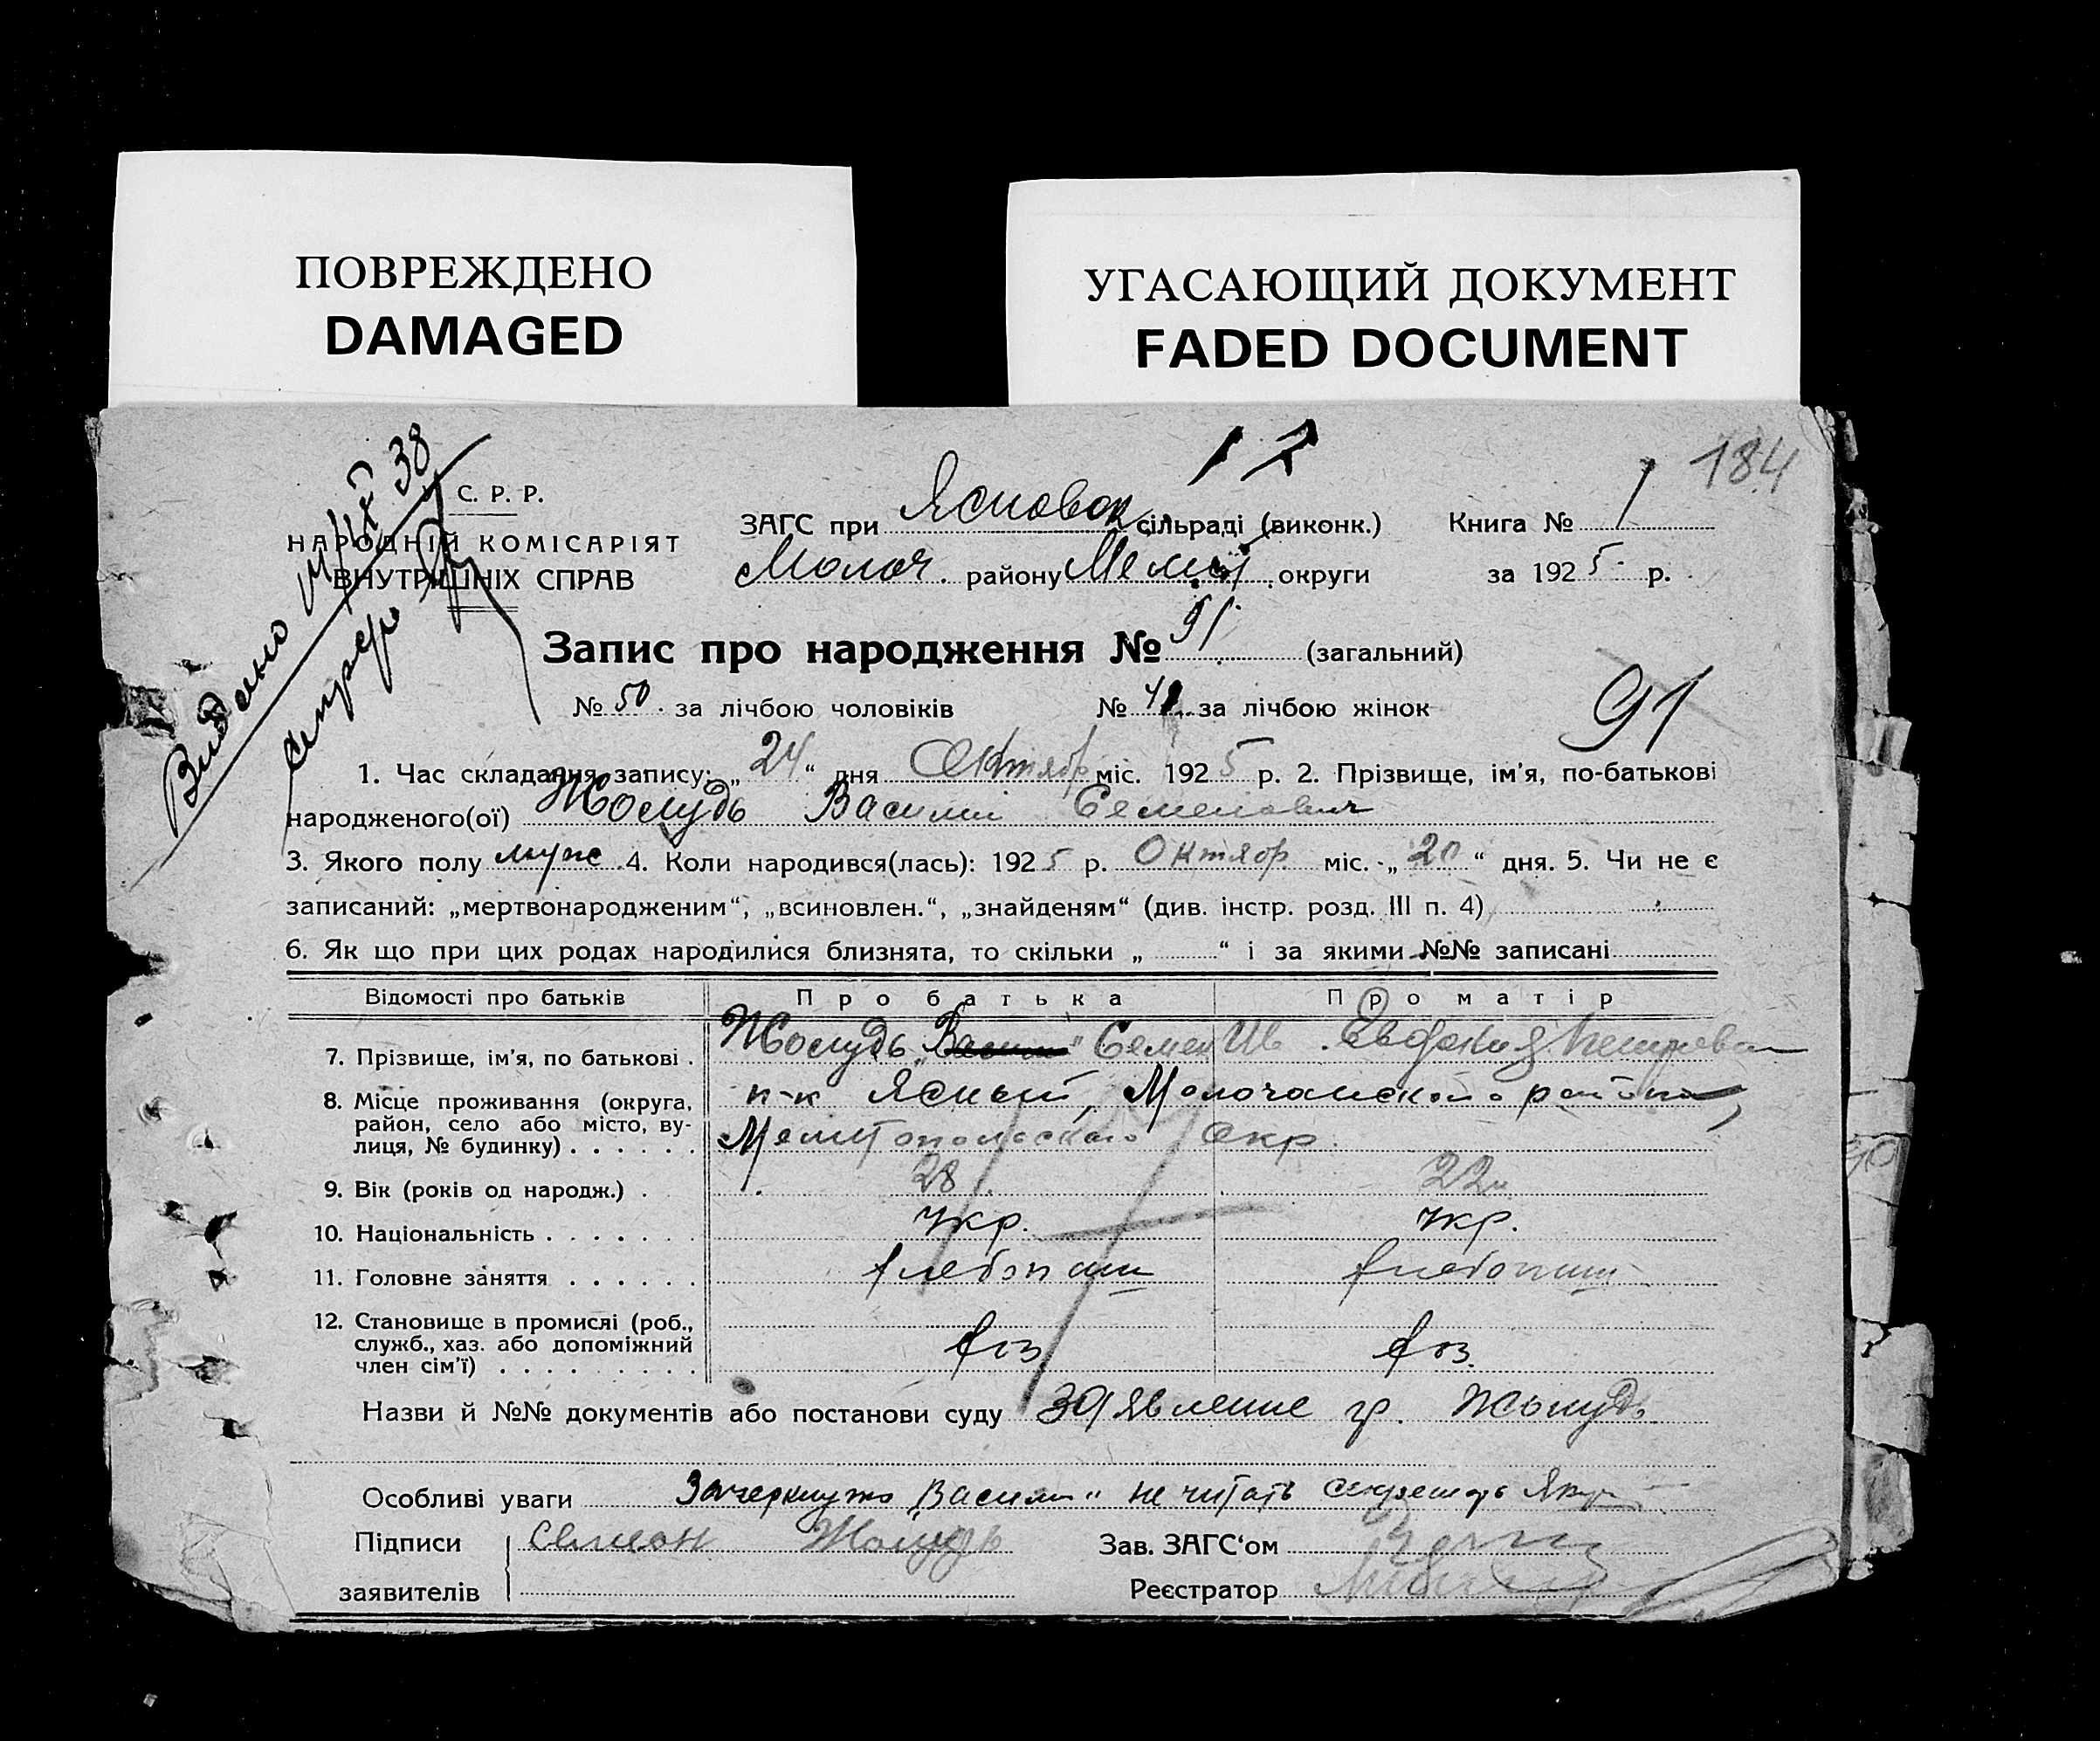 ПОВРЕЖДЕНО
DAMAGED
УГАСАЮЩИЙ ДОКУМЕНТ
FADED DOCUMENT
184
Видано 38
С. Р. Р.
НАРОДНІЙ КОМІСАРІЯТ
ВНУТРІШНІХ СПРАВ
ЗАГС при Ясновок. сільраді (виконк.) Книга № 1
Молоч. району Мелит. округи за 1925 р.
Запис про народження № 91 (загальний)
№ 50. за лічбою чоловіків № 41 за лічбою жінок
91
1. Час складання запису: „24“ дня Октябр міс. 1925 р. 2. Прізвище, ім'я, по-батькові
народженого(ої) Жолудь Василий Семенович
3. Якого полу муж. 4. Коли народився(лась): 1925 р. Октябр міс. „20“ дня. 5. Чи не є
записаний: „мертвонародженим“, „всиновлен.“, „знайденям“ (див. інстр. розд. III п. 4)
6. Як що при цих родах народилися близнята, то скільки „ “ і за якими №№ записані
Відомості про батьків Про батька Про матір
7. Прізвище, ім'я, по батькові . Жолудь „Васили“ Семен Ив. Евдокия Петровна
8. Місце проживання (округа, п-к Ясный, Молочанского района,
район, село або місто, ву- Мелитопольского Окр.
лиця, № будинку) . . . . . .
9. Вік (років од народж.) . 28 22
10. Національність . . . . . . . Укр. Укр.
11. Головне заняття . . . . . . хлебопаш хлебопаш
12. Становище в промислі (роб.,
служб., хаз. або допоміжний хоз. хоз.
член сім'ї) . . . . . . . . .
Назви й №№ документів або постанови суду Заявление гр. Жолудь
Особливі уваги Зачеркнуто „Васили“ не читать секретарь
Підписи Семен Жолудь Зав. ЗАГС'ом
заявителів Реєстратор